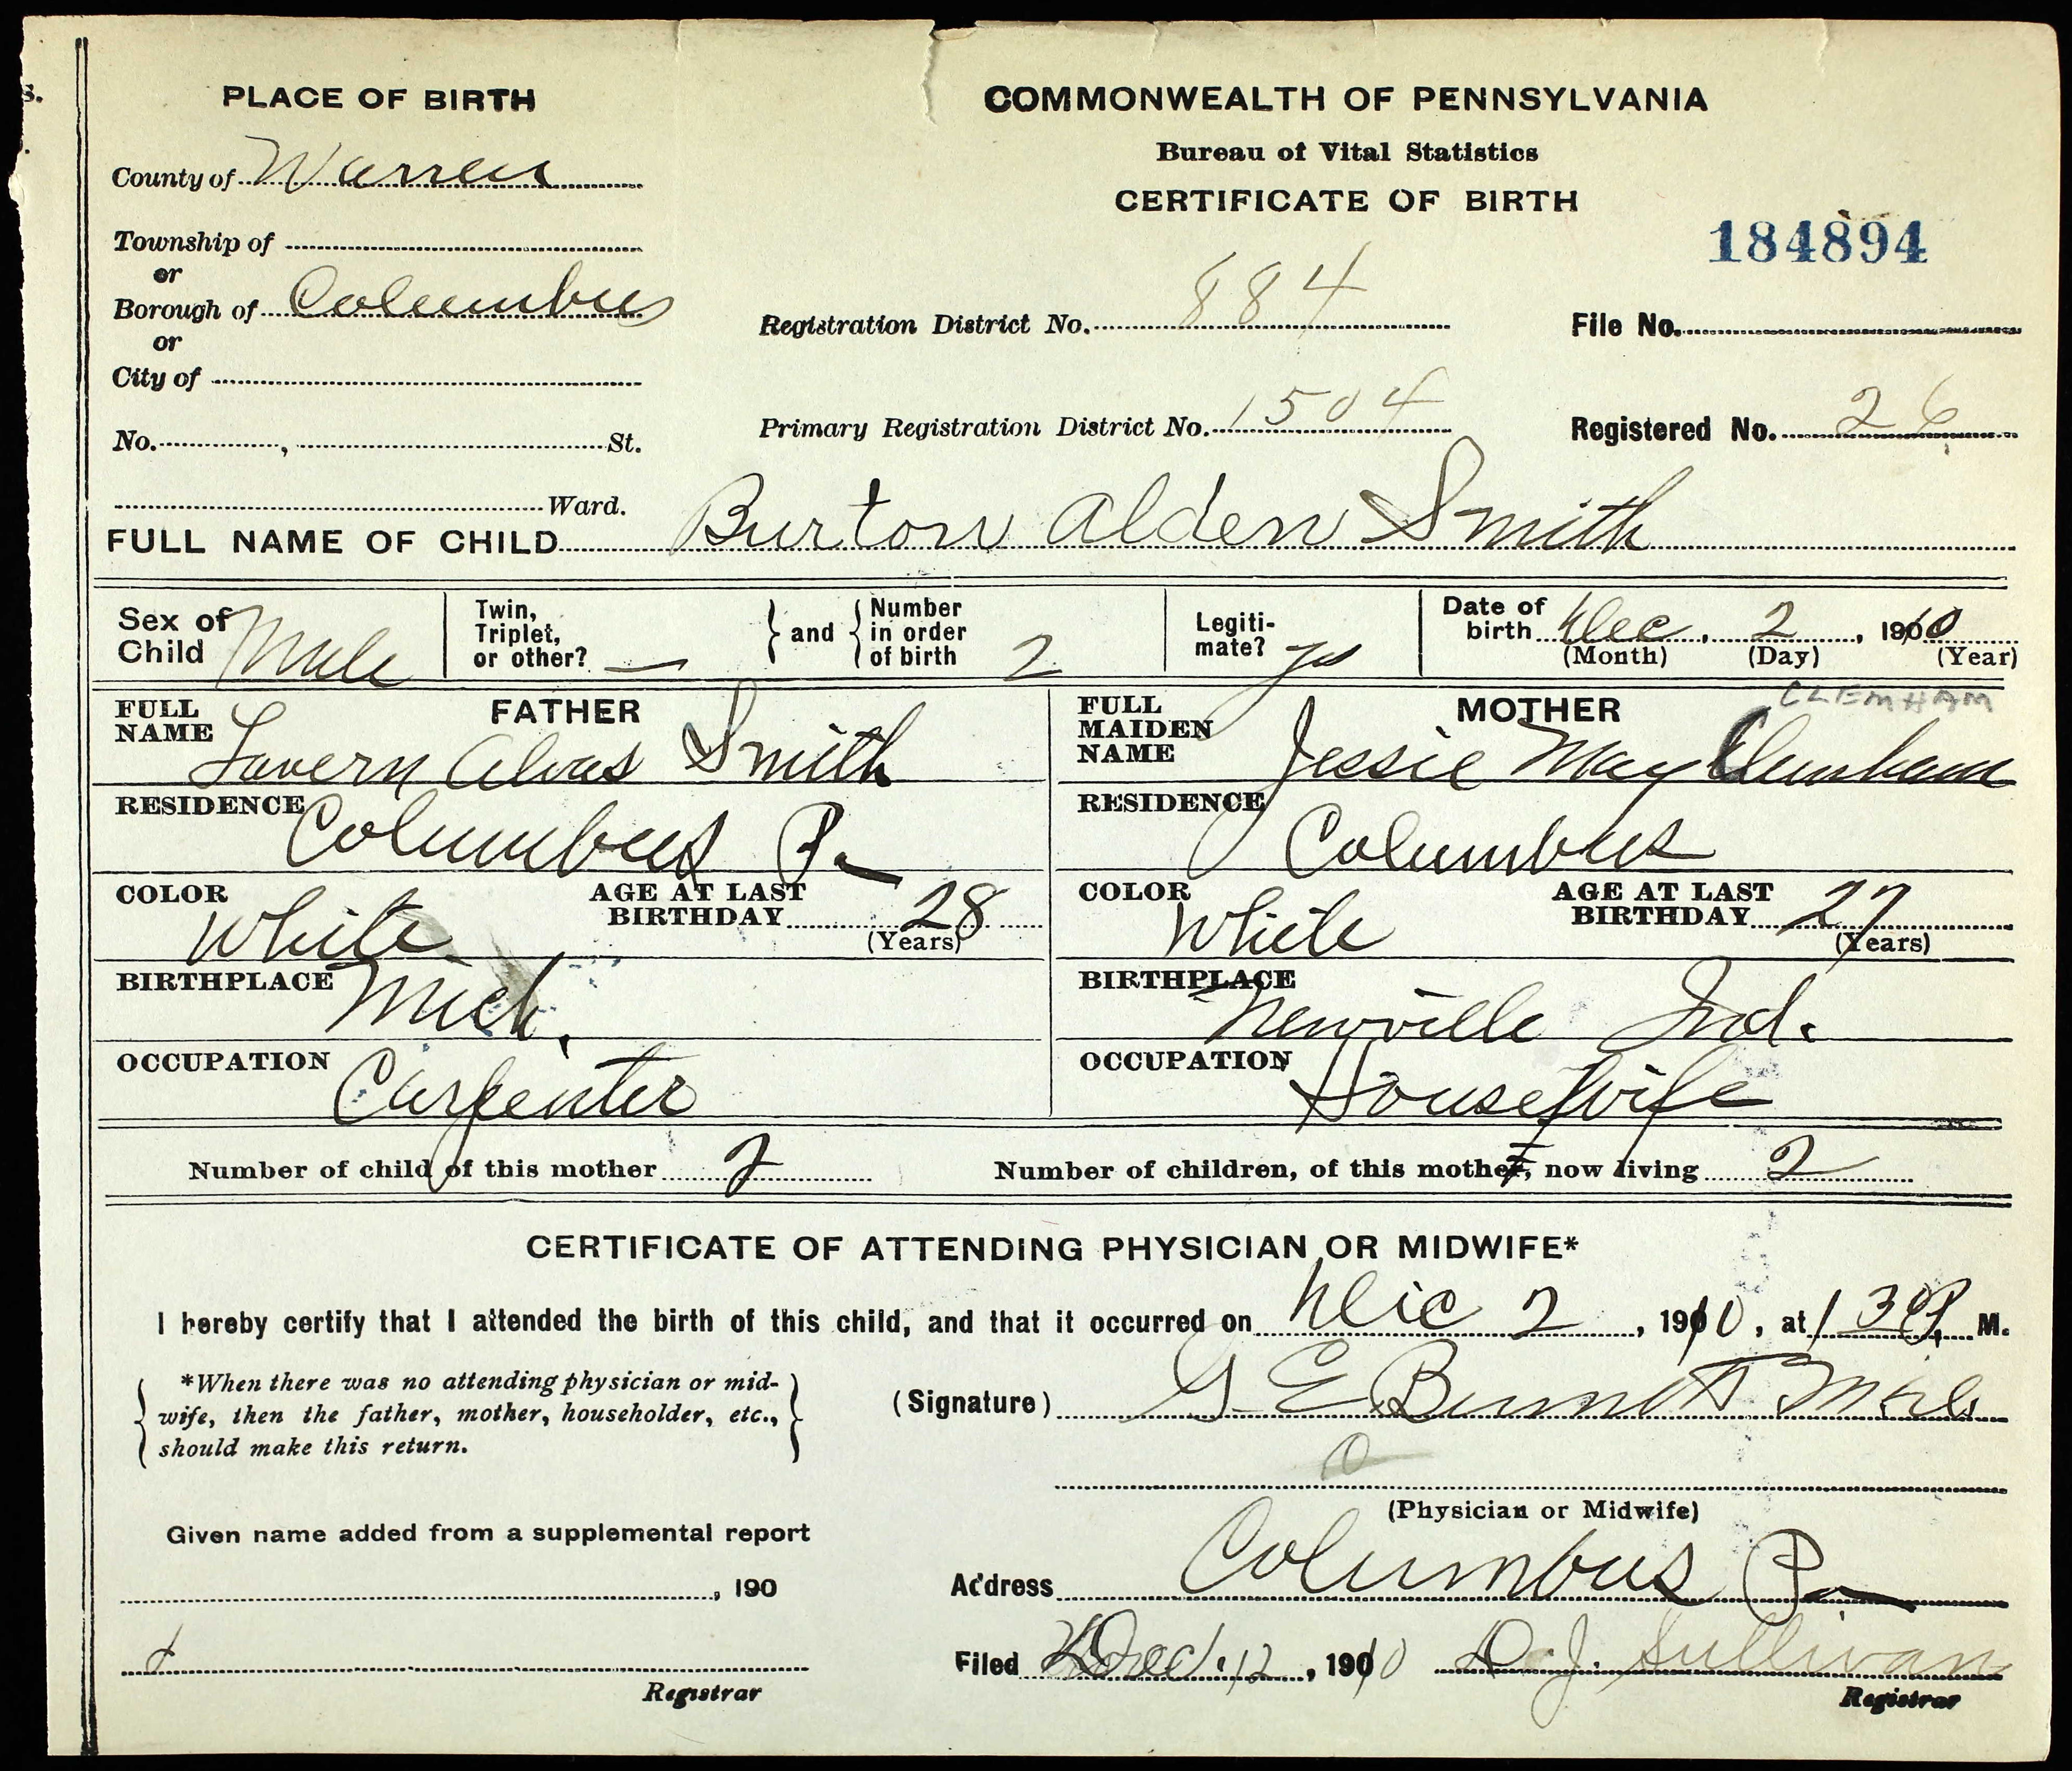 s.
PLACE OF BIRTH
County of Warren
Township of
or
Borough of Columbus
or
City of
No. , St.
Ward.
COMMONWEALTH OF PENNSYLVANIA
Bureau of Vital Statistics
CERTIFICATE OF BIRTH
184894
Registration District No. 884
File No.
Primary Registration District No. 1504
Registered No. 26
FULL NAME OF CHILD Burton Alden Smith
Sex of Child Male
Twin, Triplet, or other? —
and
Number in order of birth 2
Legitimate? yes
Date of birth Dec, 2, 1910
(Month) (Day) (Year)
FATHER
FULL NAME Lavern Alvas Smith
RESIDENCE Columbus Pa
COLOR White
AGE AT LAST BIRTHDAY 28
(Years)
BIRTHPLACE Mich.
OCCUPATION Carpenter
MOTHER
CLEMHAM
FULL MAIDEN NAME Jessie May Clemham
RESIDENCE Columbus
COLOR White
AGE AT LAST BIRTHDAY 27
(Years)
BIRTHPLACE Newville Ind.
OCCUPATION Housewife
Number of child of this mother 2
Number of children, of this mother, now living 2
CERTIFICATE OF ATTENDING PHYSICIAN OR MIDWIFE*
I hereby certify that I attended the birth of this child, and that it occurred on Dec 2, 1910, at 1 30 P. M.
*When there was no attending physician or mid-
wife, then the father, mother, householder, etc.,
should make this return.
(Signature) G E Bennett
(Physician or Midwife)
Given name added from a supplemental report
, 190
Registrar
Address Columbus Pa
Filed Dec. 12, 1910 D. J. Sullivan
Registrar